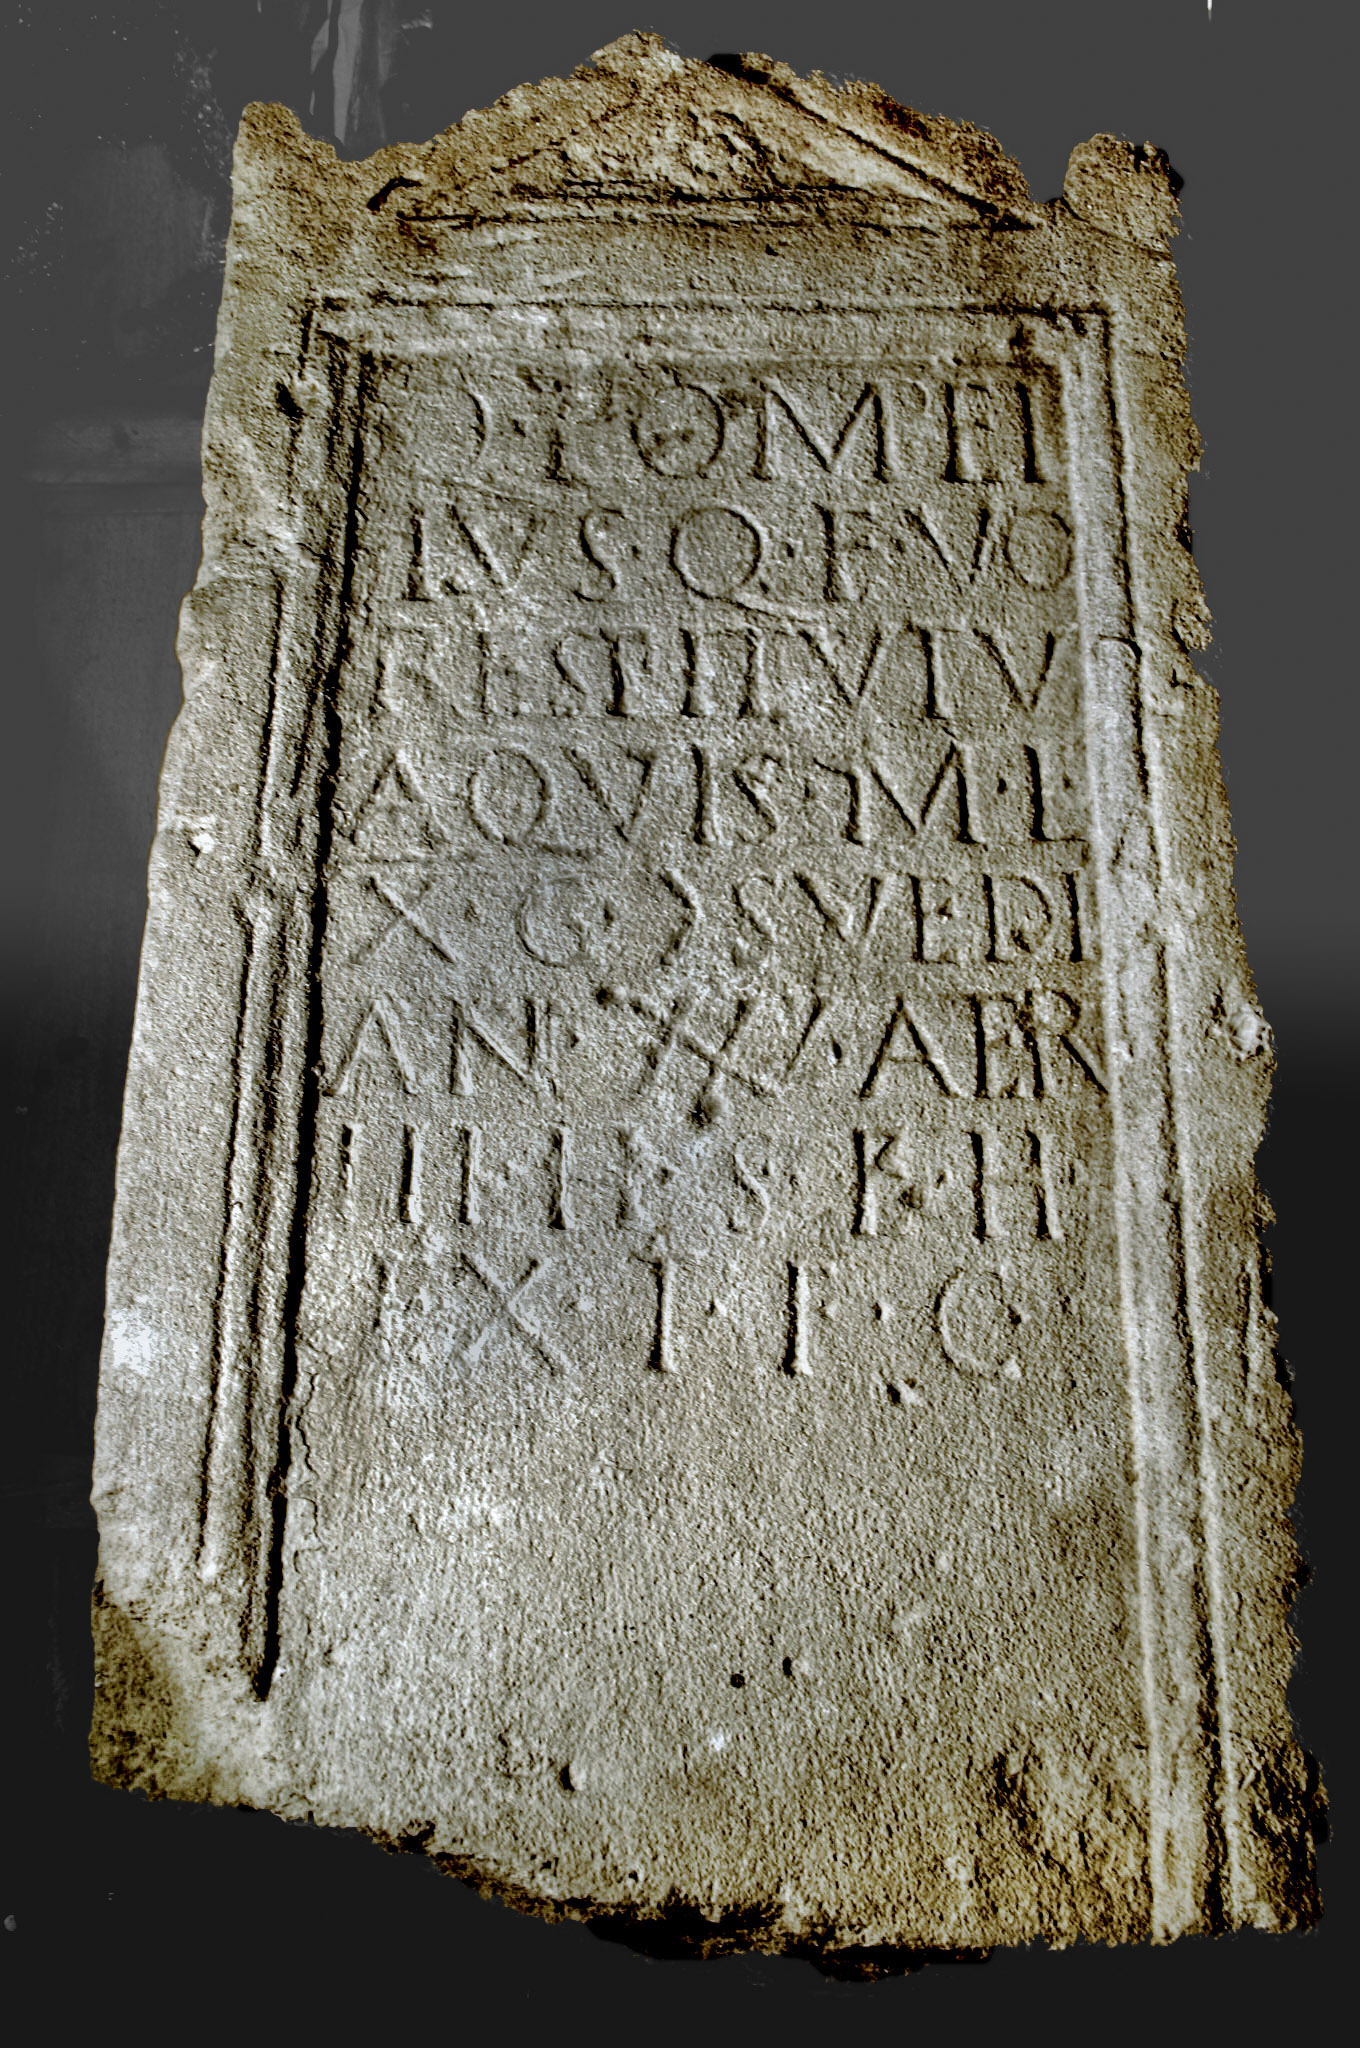 Q · POMEI
IVS · Q · F · VO
RESTITVTV
AQVIS · M · L ·
X · G · Ɔ SVEDI
AN · XXV · AER
III · H · S · E · H
EX T · F · C ·